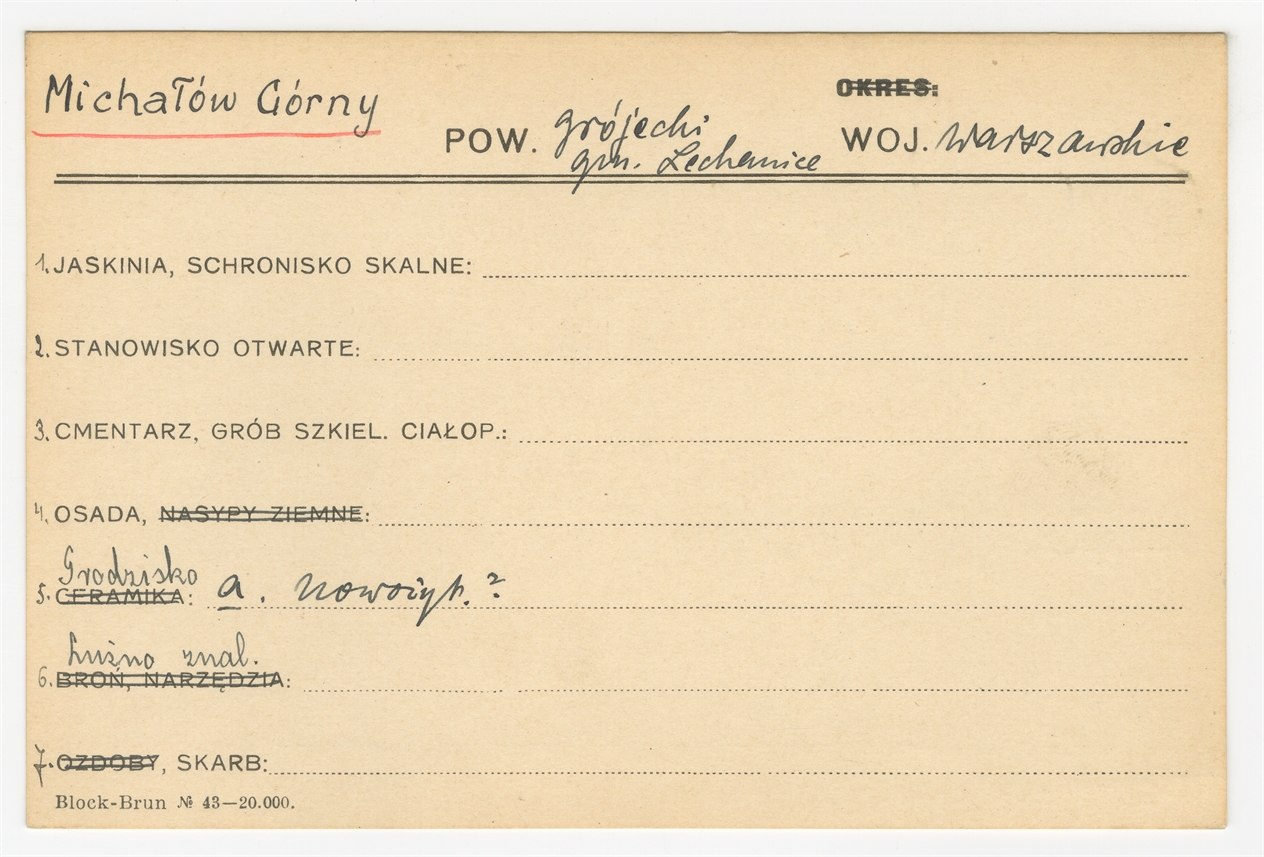 Michałów Górny
OKRES:
POW. grójecki WOJ. Warszawskie
gm. Lechanice
1. JASKINIA, SCHRONISKO SKALNE:
2. STANOWISKO OTWARTE:
3. CMENTARZ, GRÓB SZKIEL. CIAŁOP.:
4. OSADA, NASYPY ZIEMNE:
Grodzisko
5. CERAMIKA: a. nowożyt.?
Luźno znal.
6. BROŃ, NARZĘDZIA:
7. OZDOBY, SKARB:
Block-Brun № 43—20.000.